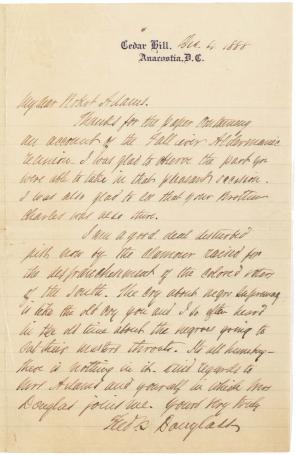 Cedar Hill, Dec. 4, 1888
Anacostia, D.C.
My dear Robert Adams.
Thanks for the paper containing
an account of the Fall river Aldermanic
reunion. I was glad to observe the part you
were able to take in that pleasant occasion.
I was also glad to see that your Brother
Charles was also there.
I am a good deal disturbed
just now by the clamour raised for
the disfranchisement of the colored voters
of the South. The cry about negro supremacy
is like the old cry you and I so often heard
in the old time about the negroes going to
cut their masters throats. It's all humbug—
there is nothing in it. Kind regards to
Mrs Adams and yourself in which Mrs
Douglass joins me. Yours Very truly
Fredk Douglass